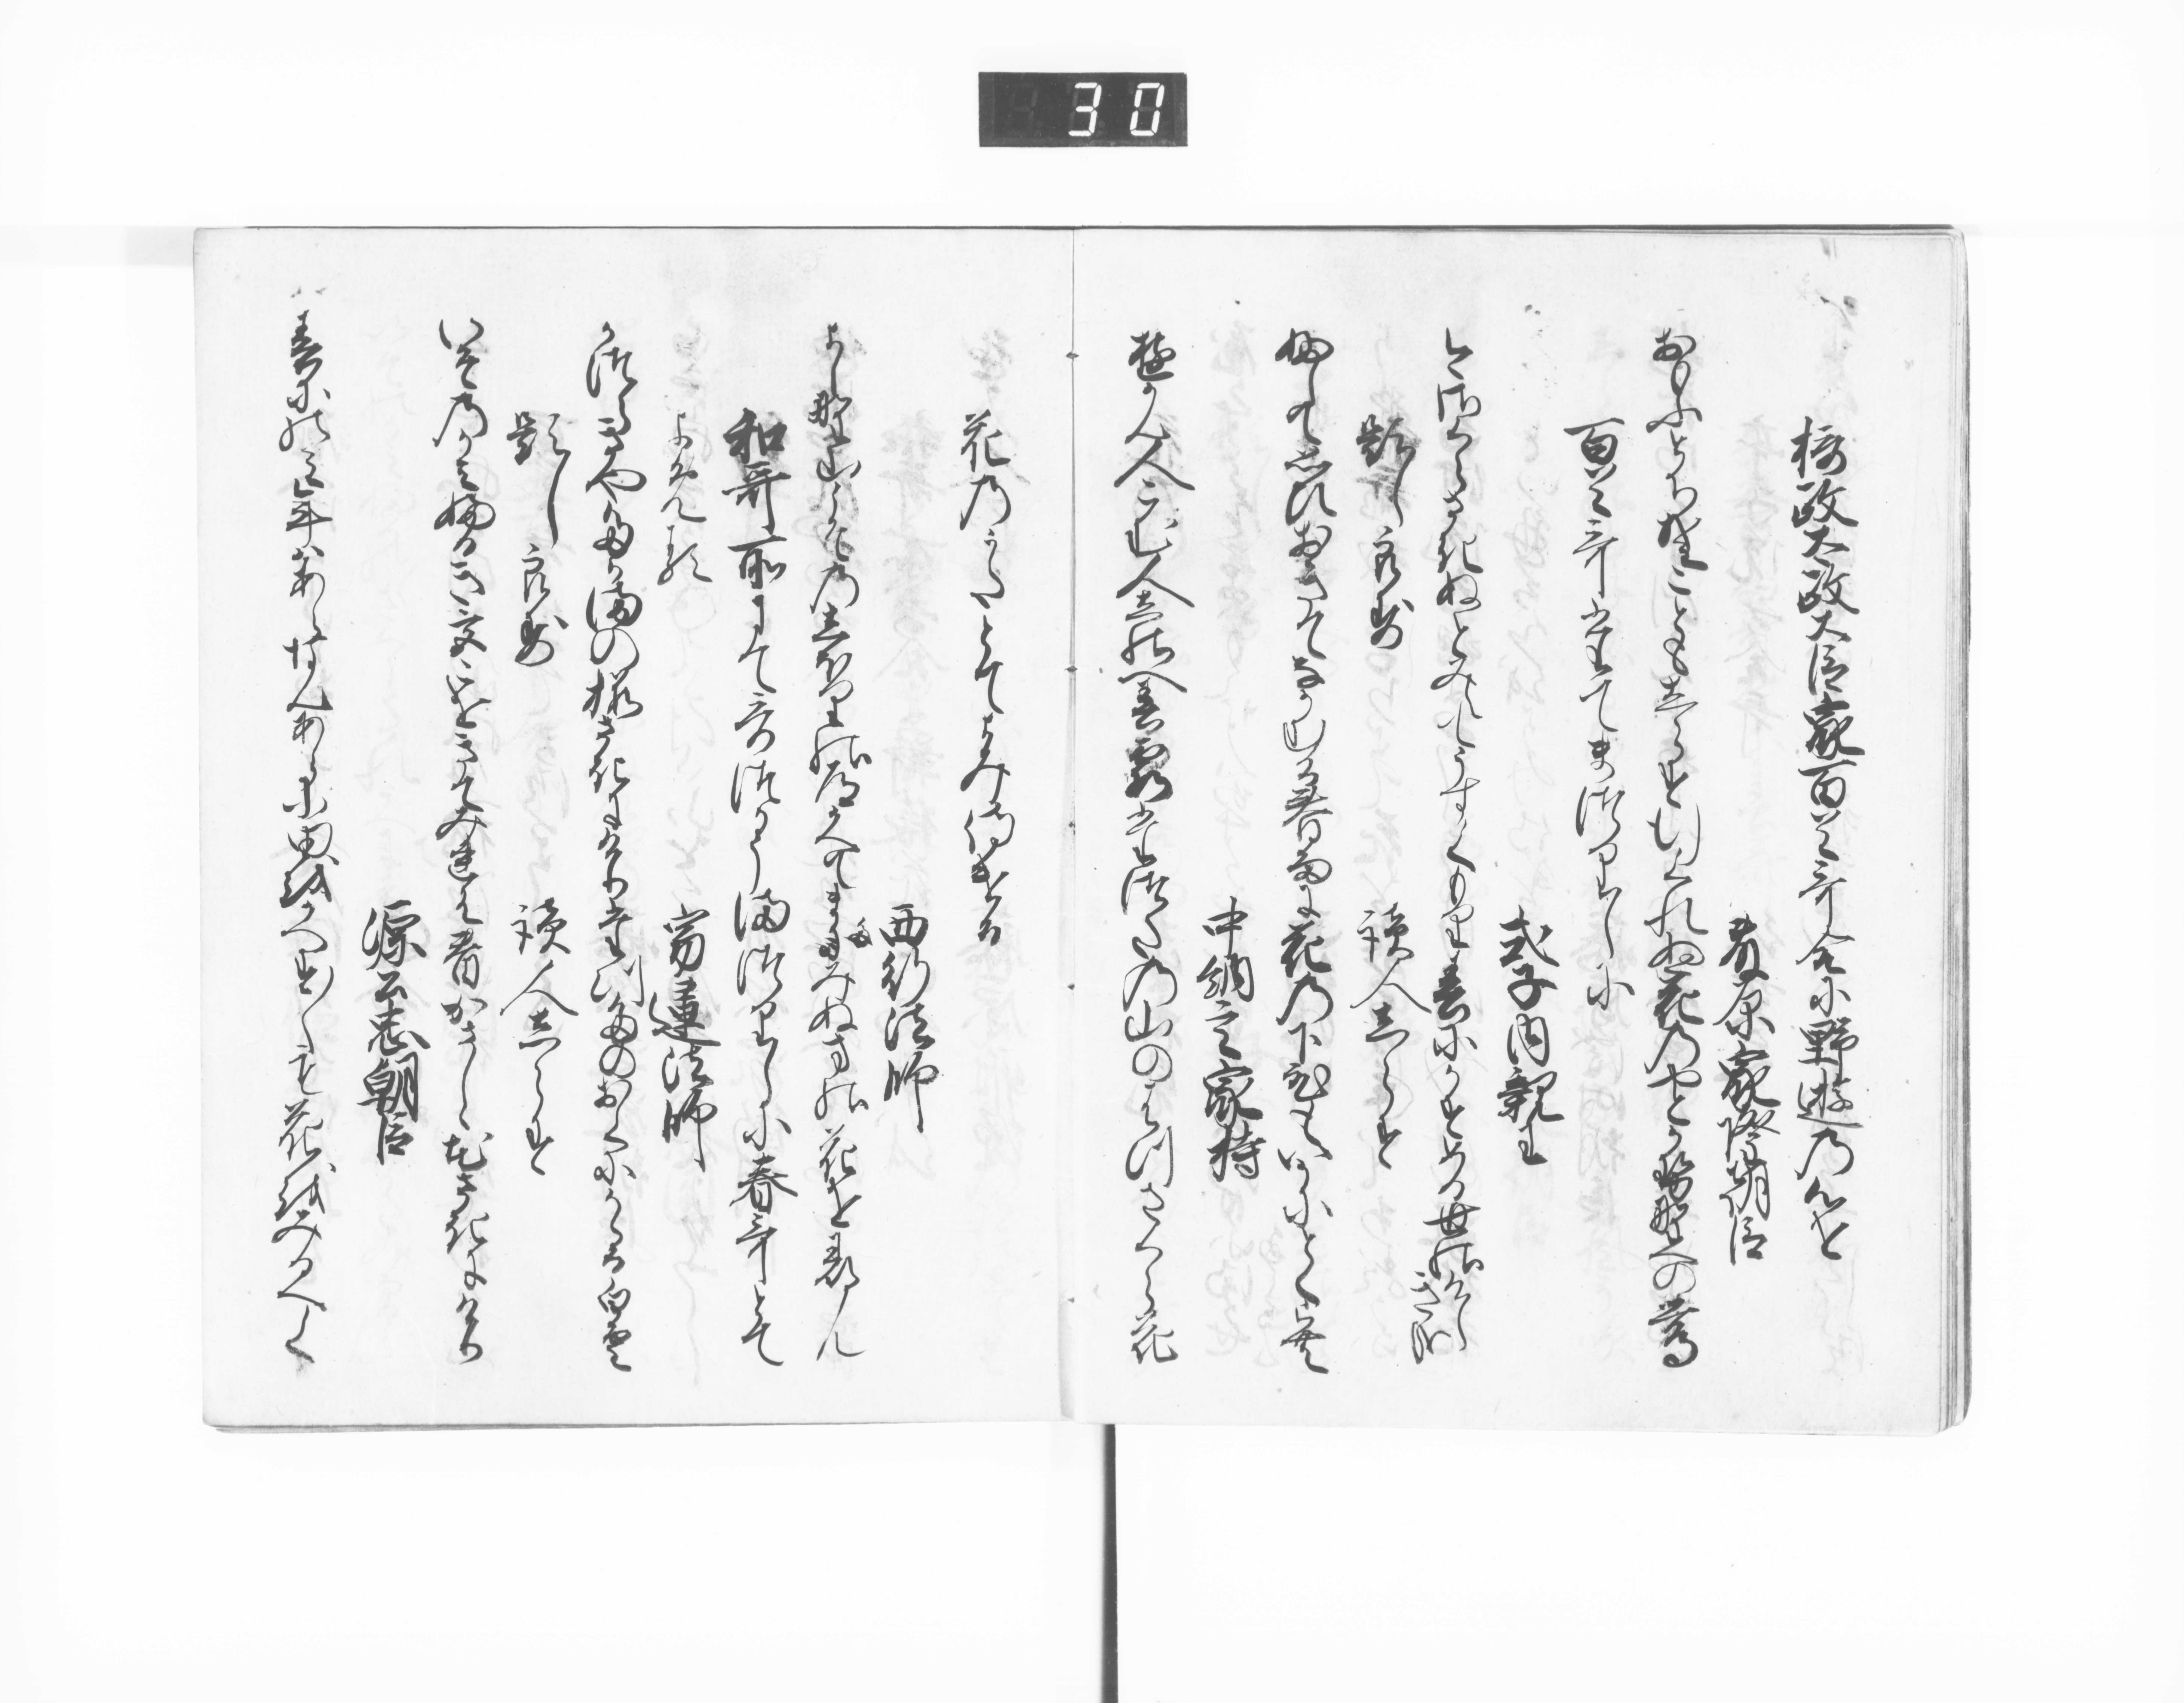 30
摂政太政大臣家百首哥合に野遊の心を
藤原家隆朝臣
おもふとちそこともしらす行くれぬ花のやとかせ野へのうくひす
百首哥たてまつりしに
式子内親王
いまさくらさきぬとみえてうすくもり春にかすめる世のけしきかな
題しらす
読人しらす
ふして思ひおきてなかむる春雨に花の下ひもいかにとくらむ
中納言家持
ゆかん人こむ人しのへ春霞たつたの山のはつさくら花
花のうたとてよみ侍ける
西行法師
よし野山こその志をりの道かへてまたみぬかたの花を尋ん
和哥所にて哥つかうまつりしに春哥とて
よめる
寂蓮法師
かつらきやたかまの桜さきにけりたつたのおくにかゝる白雲
題しらす
読人しらす
いその神ふるき都をきてみれは昔かさしし花さきにけり
源公忠朝臣
春にのみ年はあらなんあら小田をかへすかへすも花をみるへく